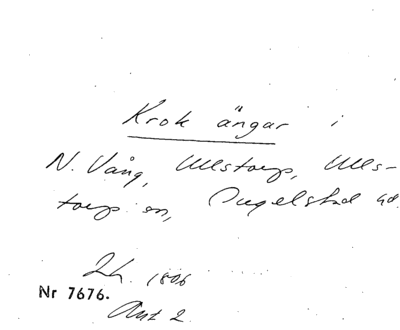 Krok ängar i
N. Vång, Ullstorp, Ulls-
torp sn, Ingelstad hd.
Lh. 1806
Nr 7676.
Ant 2